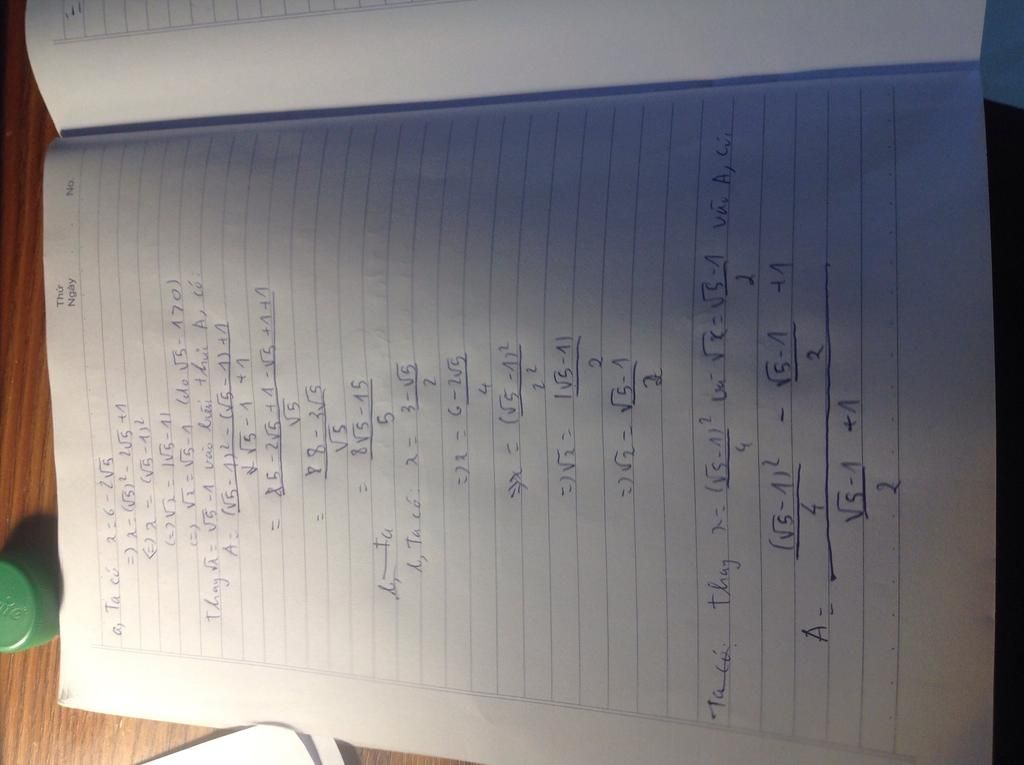 Thứ
Ngày
No.
a, Ta có x = 6 - 2√5
=) x = (√5)² - 2√5 + 1
(=) x = (√5 - 1)²
(=) √x = |√5 - 1|
(=) √x = √5 - 1 (do √5 - 1 > 0)
thay √x = √5 - 1 vào biểu thức A, có:
A = ((√5 - 1)² - (√5 - 1) + 1) / (√5 - 1 + 1)
= (5 - 2√5 + 1 - √5 + 1 + 1) / √5
= (8 - 3√5) / √5
= (8√5 - 15) / 5
b, Ta có: x = (3 - √5) / 2
=) x = (6 - 2√5) / 4
=) x = (√5 - 1)² / 2²
=) √x = |√5 - 1| / 2
=) √x = (√5 - 1) / 2
Ta có: thay x = (√5 - 1)² / 4 và √x = (√5 - 1) / 2 vào A, có,
A = ((√5 - 1)² / 4 - (√5 - 1) / 2 + 1) / ((√5 - 1) / 2 + 1)